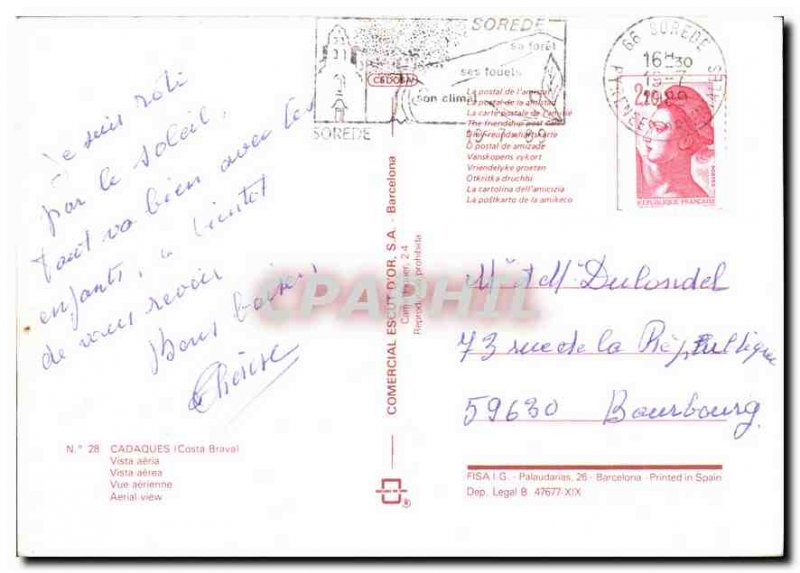 Je suis rôti
par le soleil,
tout va bien avec les
enfants, à bientôt
de vous revoir
Bons baisers
Thérèse
N.° 28 CADAQUES (Costa Brava)
Vista aèria
Vista aérea
Vue aérienne
Aerial view
COMERCIAL ESCUT D'OR, S.A. - Barcelona
Reproducción prohibida
CPAPHIL
SOREDE
sa forêt
ses fouets
son climat
SOREDE
CEDOSA
La postal de l'amistat
La postal de la amistad
La carte postale de l'amitié
The friendship post card
Die Freundschaftskarte
O postal de amizade
Vänskopens vykort
Vriendelyke groeten
Otkritka druchbi
La cartolina dell'amicizia
La poŝtkarto de la amikeco
66 SOREDE
16H30
19-7
1989
PYRENEES ORIENTALES
2,20
REPUBLIQUE FRANÇAISE
Mr et Me Dulondel
73 rue de la République
59630 Bourbourg
FISA I.G. - Palaudarias, 26 - Barcelona - Printed in Spain
Dep. Legal B. 47677-XIX